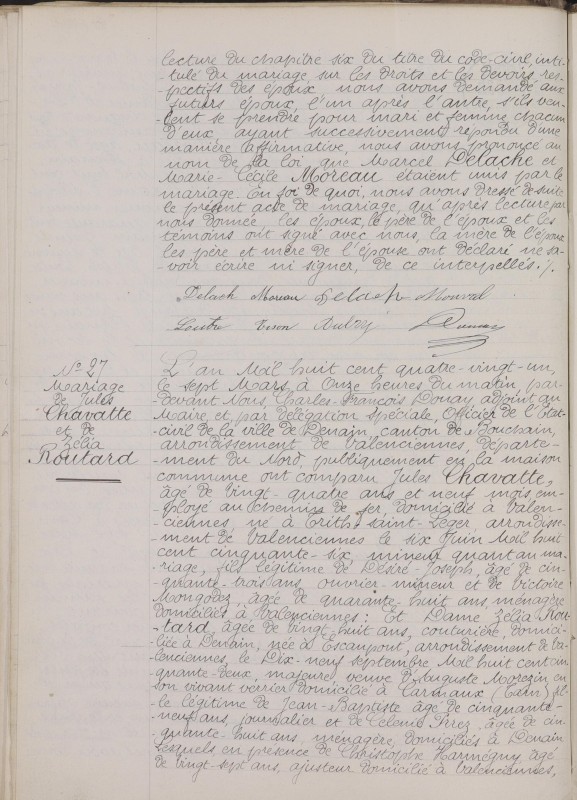 lecture du chapitre six du titre du code-civil, inti-
-tulé du mariage, sur les droits et les devoirs, res-
-pectifs des époux, nous avons demandé aux
futurs époux, l'un après l'autre, s'ils veu-
-lent se prendre pour mari et femme chacun
d'eux, ayant successivement répondu d'une
manière affirmative, nous avons prononcé au
nom de la loi, que Marcel Delache et
Marie-Cécile Moreau étaient unis par le
mariage. En foi de quoi, nous avons dressé de suite
le présent acte de mariage, qu'après lecture par
nous donnée, les époux, le père de l'époux et les
témoins ont signé avec nous, la mère de l'époux
les père et mère de l'épouse ont déclaré ne sa-
-voir écrire ni signer, de ce interpellés./.
Delach Moreau Delach Monval
N° 27
Mariage
de Jules
Chavatte
et de
Zélia
Routard
L'an Mil huit cent quatre-vingt-un,
le sept Mars, à Onze heures du matin, par-
-devant Nous, Charles-François Douay adjoint au
Maire, et, par délégation spéciale, Officier de l'Etat-
-civil de la ville de Denain, canton de Bouchain,
arrondissement de Valenciennes, départe-
-ment du Nord, publiquement en la maison
commune ont comparu Jules Chavatte,
âgé de vingt-quatre ans et neuf mois, em-
-ployé au chemin de fer, domicilié à Valen-
-ciennes, né à Trith-saint-Léger, arrondisse-
-ment de Valenciennes le six Juin Mil huit
cent cinquante-six, mineur quant au ma-
-riage, fils légitime de Désiré-Joseph, âgé de cin-
-quante-trois ans, ouvrier-mineur et de Victoire
Mongodez, âgée de quarante-huit ans, ménagère
domiciliés à Valenciennes: Et Dame Zélia Rou-
-tard, âgée de vingt-huit ans, couturière, domici-
-liée à Denain, née à Escaupont, arrondissement de Va-
-lenciennes, le Dix-neuf septembre Mil huit cent cin-
-quante-deux, majeure, veuve d'Auguste en
son vivant verrier domicilié à Carmaux (Tarn) fil-
-le légitime de Jean-Baptiste âgé de cinquante-
-neuf ans, journalier et de Célénie âgée de cin-
-quante-huit ans, ménagère, domiciliés à Denain
Lesquels en présence de Christophe Harmegny, âgé
de vingt-sept ans, ajusteur domicilié à Valenciennes,